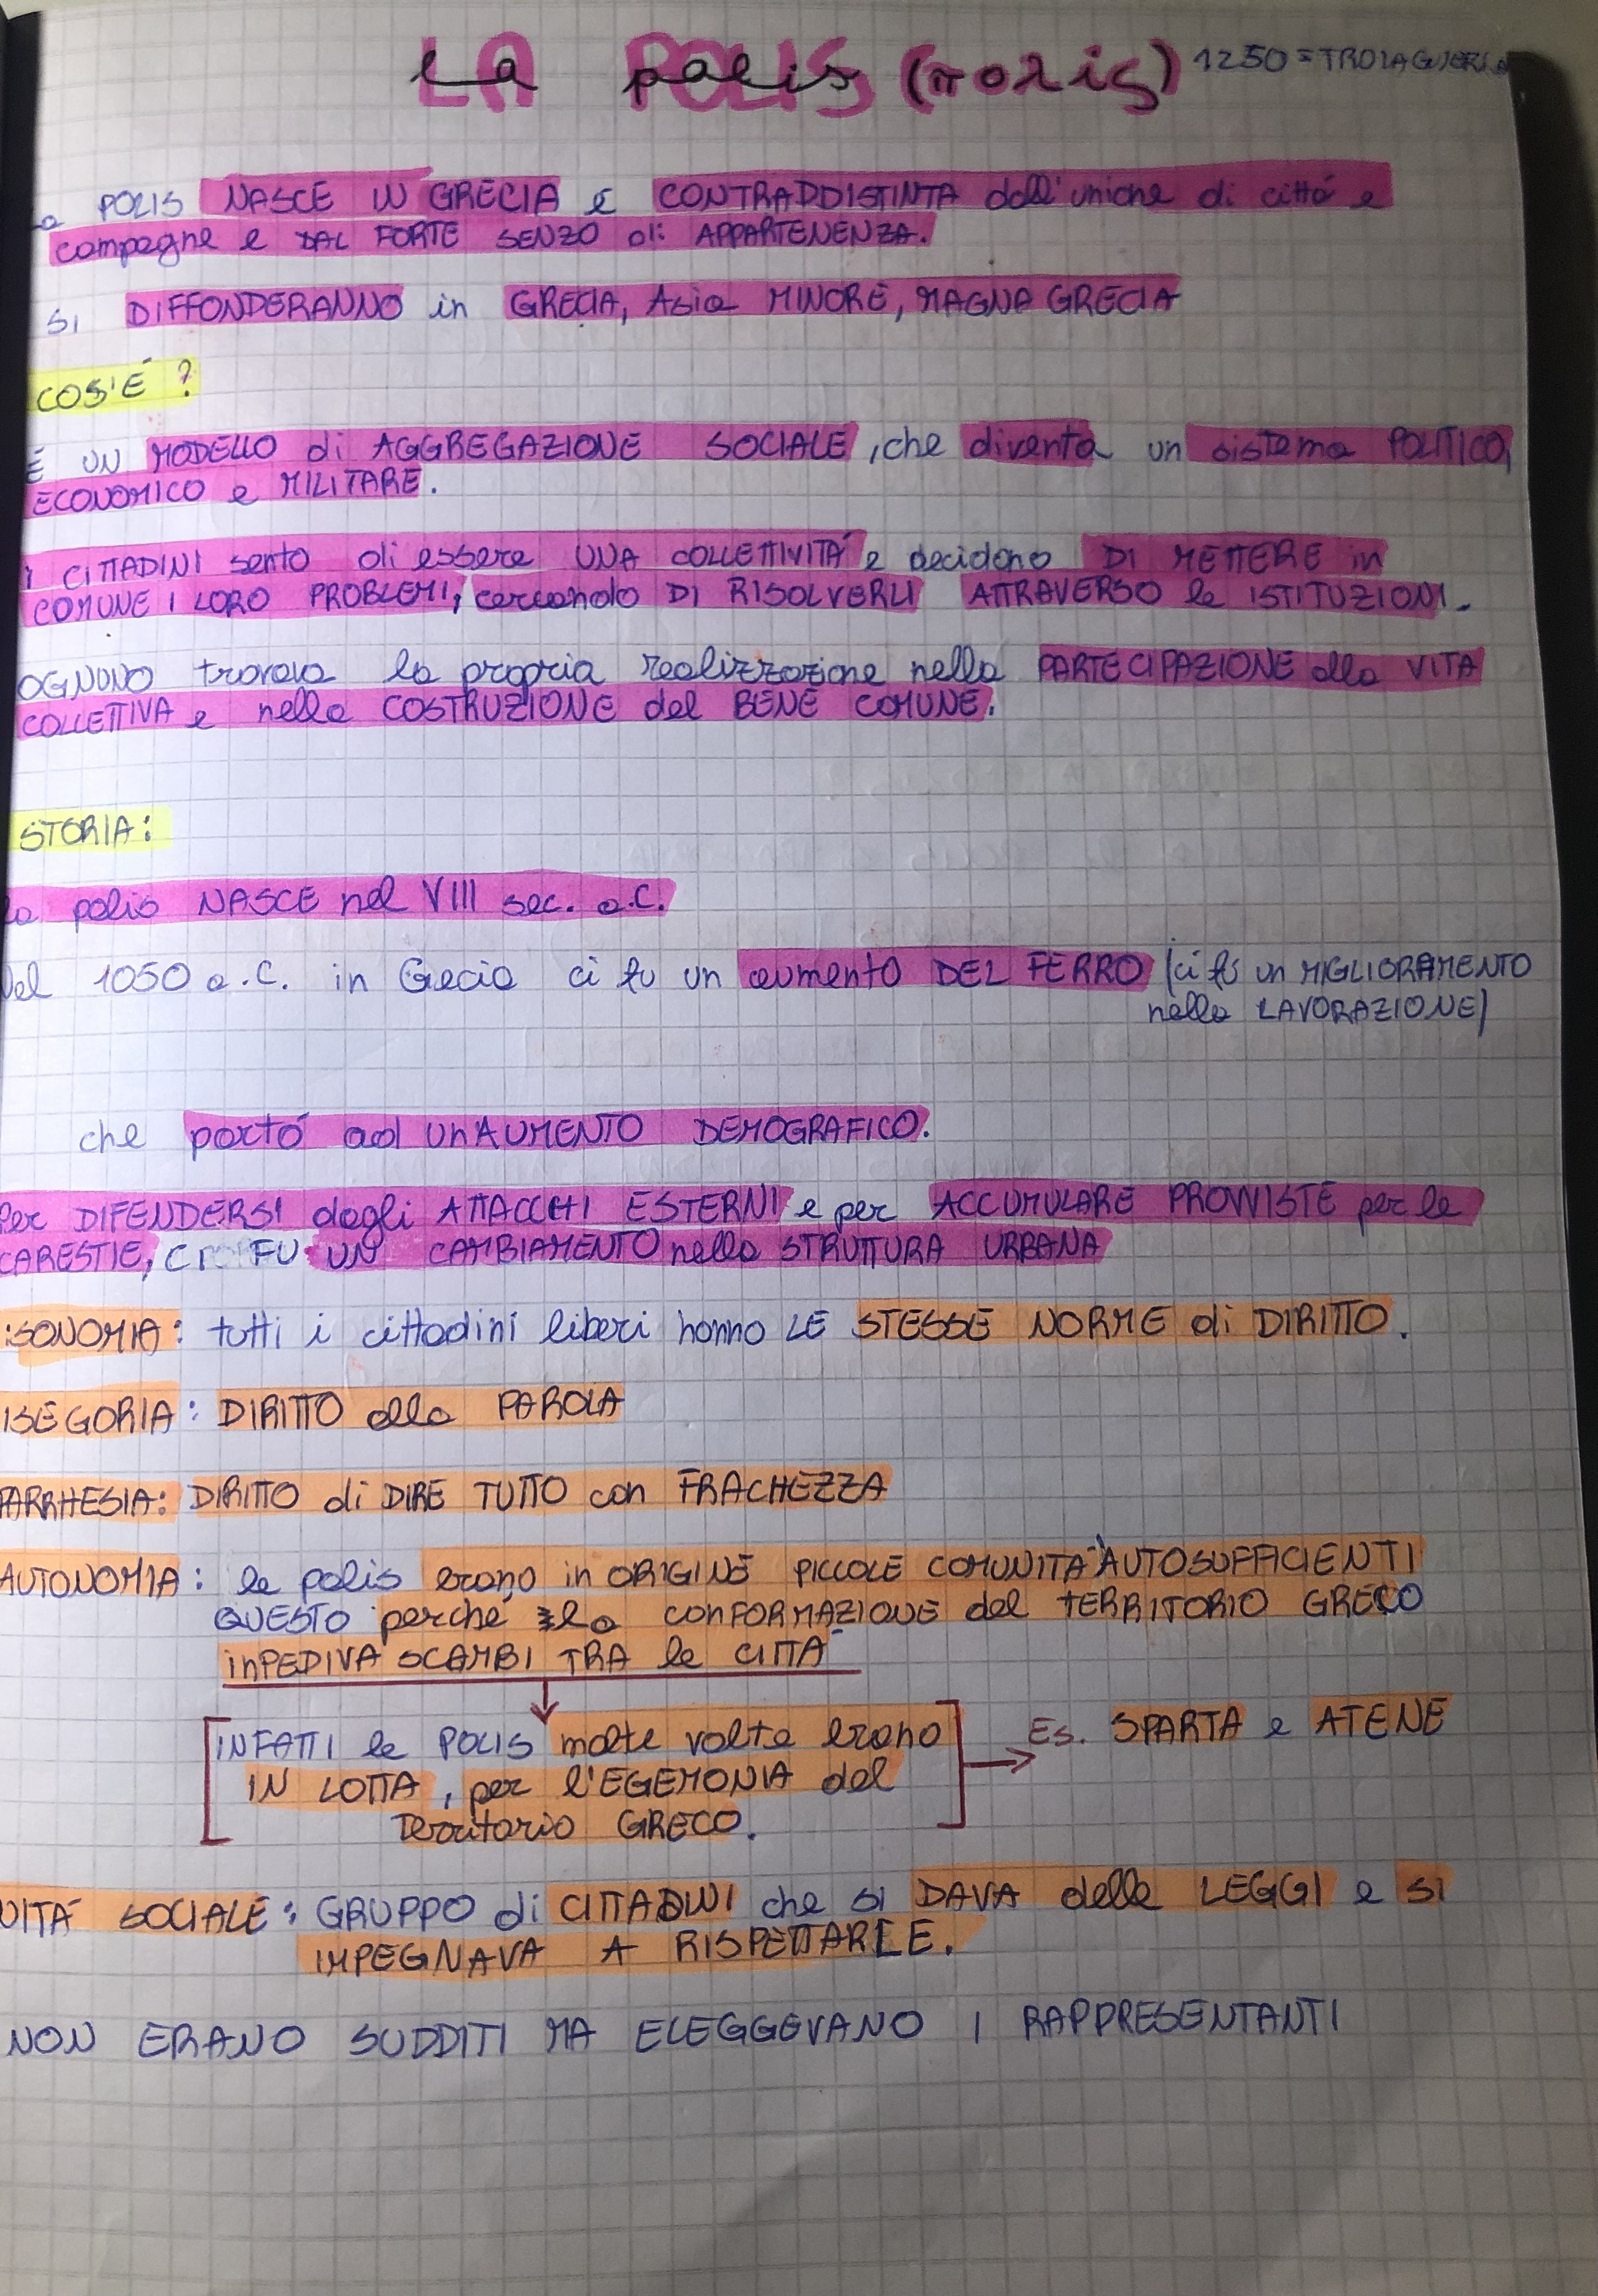 la polis (πολις) 1250 = TROIA GUERRA
La POLIS NASCE IN GRECIA é CONTRADDISTINTA dall'unione di cittá e
campagne e DAL FORTE SENZO di APPARTENENZA.
SI DIFFONDERANNO in GRECIA, Asia MINORE, MAGNA GRECIA
COS'É ?
É UN MODELLO di AGGREGAZIONE SOCIALE, che diventa un sistema POLITICO,
ECONOMICO e MILITARE.
i CITTADINI sento di essere UNA COLLETTIVITÁ e decidono DI METTERE in
COMUNE I LORO PROBLEMI, cercando DI RISOLVERLI ATTRAVERSO le ISTITUZIONI.
OGNUNO trovava la propria realizzazione nella PARTECIPAZIONE alla VITA
COLLETTIVA e nella COSTRUZIONE del BENE COMUNE.
STORIA:
la polis NASCE nel VIII sec. a.C.
Nel 1050 a.C. in Grecia ci fu un aumento DEL FERRO (ci fú un MIGLIORAMENTO
nella LAVORAZIONE)
che portó ad un AUMENTO DEMOGRAFICO.
Per DIFENDERSI dagli ATTACCHI ESTERNI e per ACCUMULARE PROVVISTE per le
CARESTIE, CI FU UN CAMBIAMENTO nella STRUTTURA URBANA
ISONOMIA: tutti i cittadini liberi hanno LE STESSE NORME di DIRITTO.
ISEGORIA: DIRITTO alla PAROLA
PARRHESIA: DIRITTO di DIRE TUTTO con FRACHEZZA
AUTONOMIA: le polis erano in ORIGINE PICCOLE COMUNITÁ AUTOSUFFICIENTI
QUESTO perché la CONFORMAZIONE del TERRITORIO GRECO
inPEDIVA SCAMBI TRA le CITTÁ
INFATTI le POLIS molte volte erano Es. SPARTA e ATENE
IN LOTTA, per l'EGEMONIA del
Territorio GRECO.
VITÁ SOCIALE: GRUPPO di CITTADINI che si DAVA delle LEGGI e SI
IMPEGNAVA A RISPETTARLE.
NON ERANO SUDDITI MA ELEGGEVANO I RAPPRESENTANTI